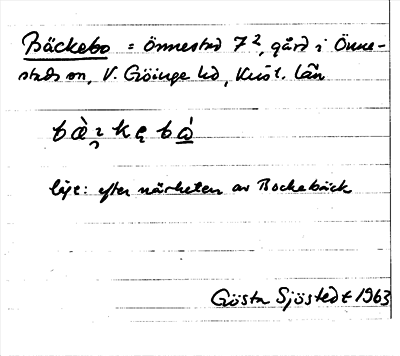 Bäckebo = Önnestad 7², gård i Önne-
stads sn, V. Göinge hd, Krist. län
bὰ̀ʒkɐbá
läge: efter närheten av Bockebäck
Gösta Sjöstedt 1963